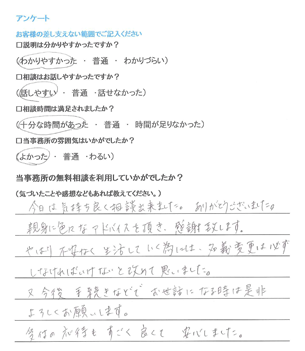 アンケート
お客様の差し支えない範囲でご記入ください
□説明は分かりやすかったですか?
（わかりやすかった ・ 普通 ・ わかりづらい）
□相談はお話しやすかったですか?
（話しやすい ・ 普通 ・話せなかった）
□相談時間は満足されましたか?
（十分な時間があった ・ 普通 ・ 時間が足りなかった）
□当事務所の雰囲気はいかがでしたか?
（よかった ・ 普通 ・わるい）
当事務所の無料相談を利用していかがでしたか?
（気づいたことや感想などもあれば教えてください。）
今日は気持ち良く相談出来ました。ありがとうございました。
親身に色々なアドバイスを頂き、感謝致します。
やはり不安なく生活していく為には、名義変更は必ず
しなければいけないと改めて思いました。
又今後手続きなどでお世話になる時は是非
よろしくお願いします。
受付の応待もすごく良くて安心しました。